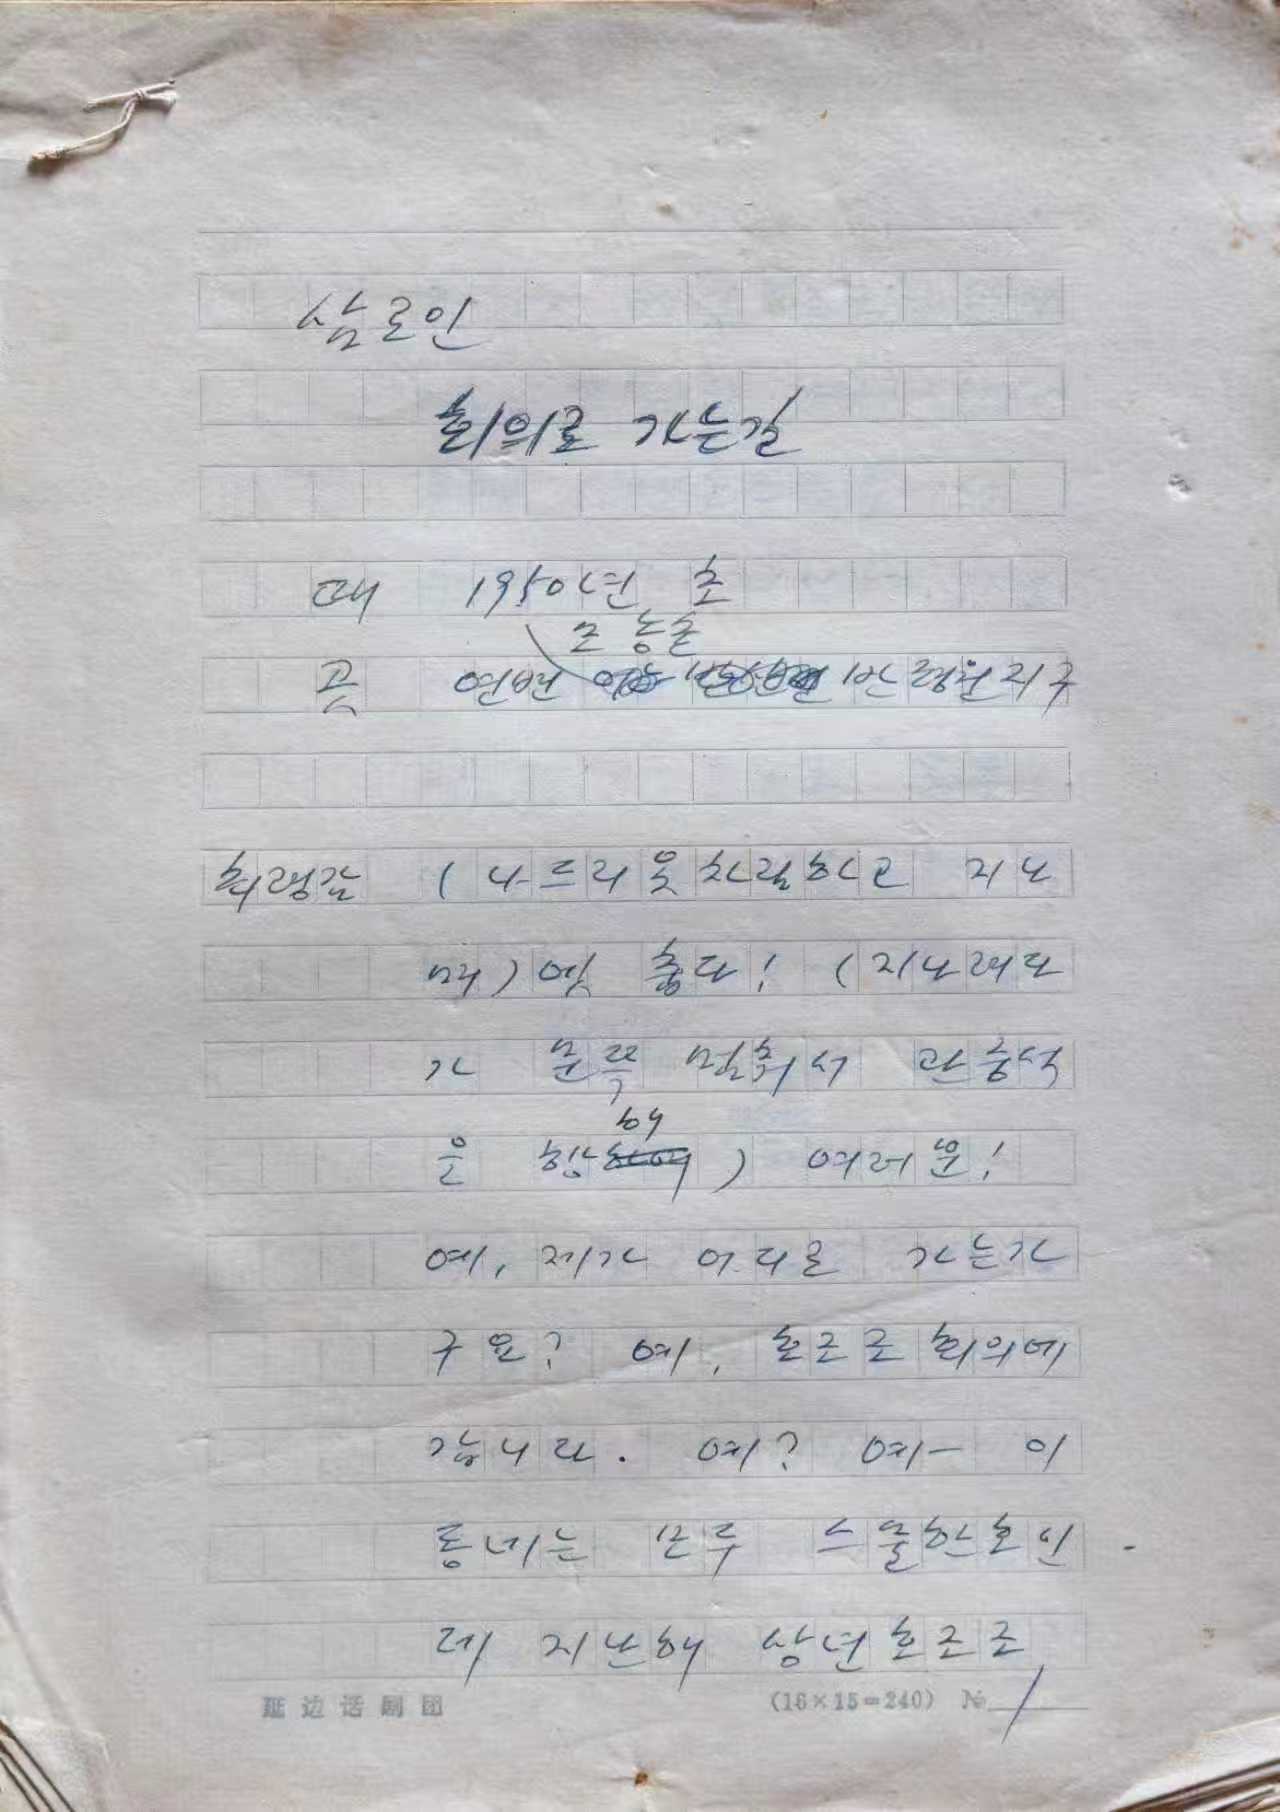 삼로인
회의로 가는길
때 1950년 초
모 농촌
곳 연변 반령원지구
최령감 (나드리옷차림하고 지나
며) 에잇 춥다! (지나려다
가 문뜩 멈춰서 관중석
을 향해) 여러분!
예, 제가 어디로 가는가
구요? 예, 호조조회의에
갑니다. 예? 예— 이
동네는 모두 스물한호인
데 지난해 상년호조조
延边话剧团 (16×15=240) № 1